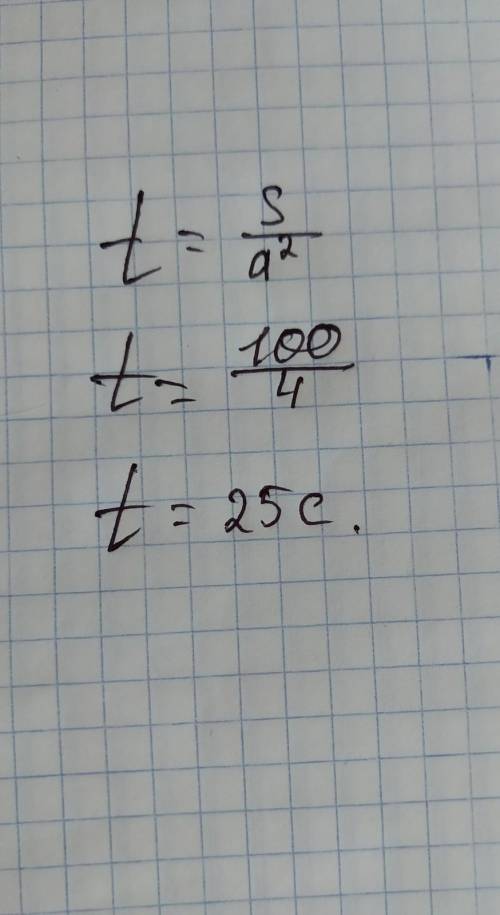 t = s/a²
t = 100/4
t = 25 c.